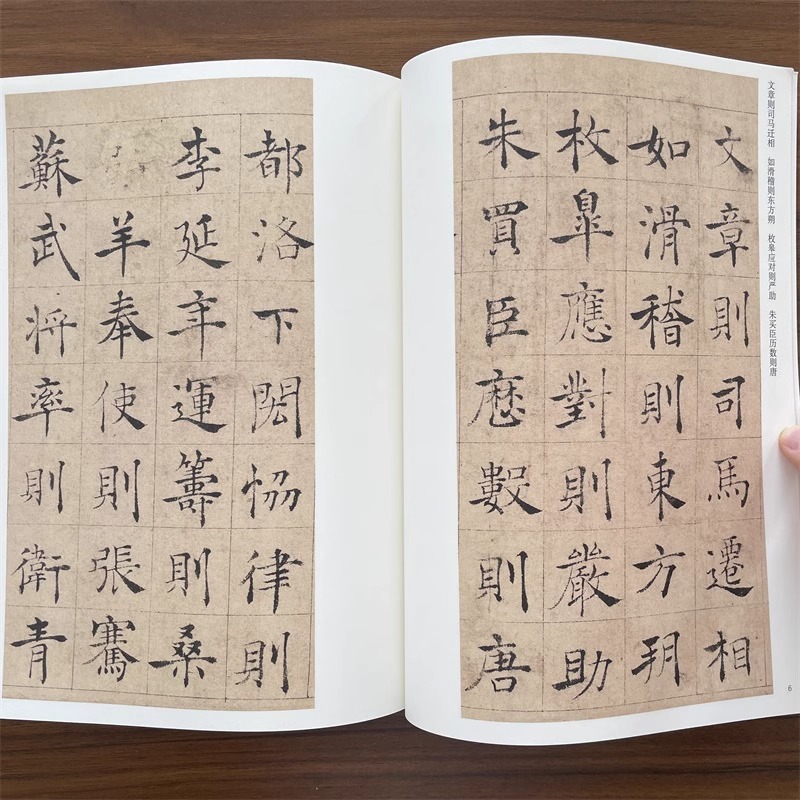 文章则司马迁相　如滑稽则东方朔　枚皋应对则严助　朱买臣历数则唐
文章則司馬遷相
如滑稽則東方朔
枚皐應對則嚴助
朱買臣厯數則唐
6
都洛下閎恊律則
李延年運籌則桑
羊奉使則張騫
蘇武將率則衛青